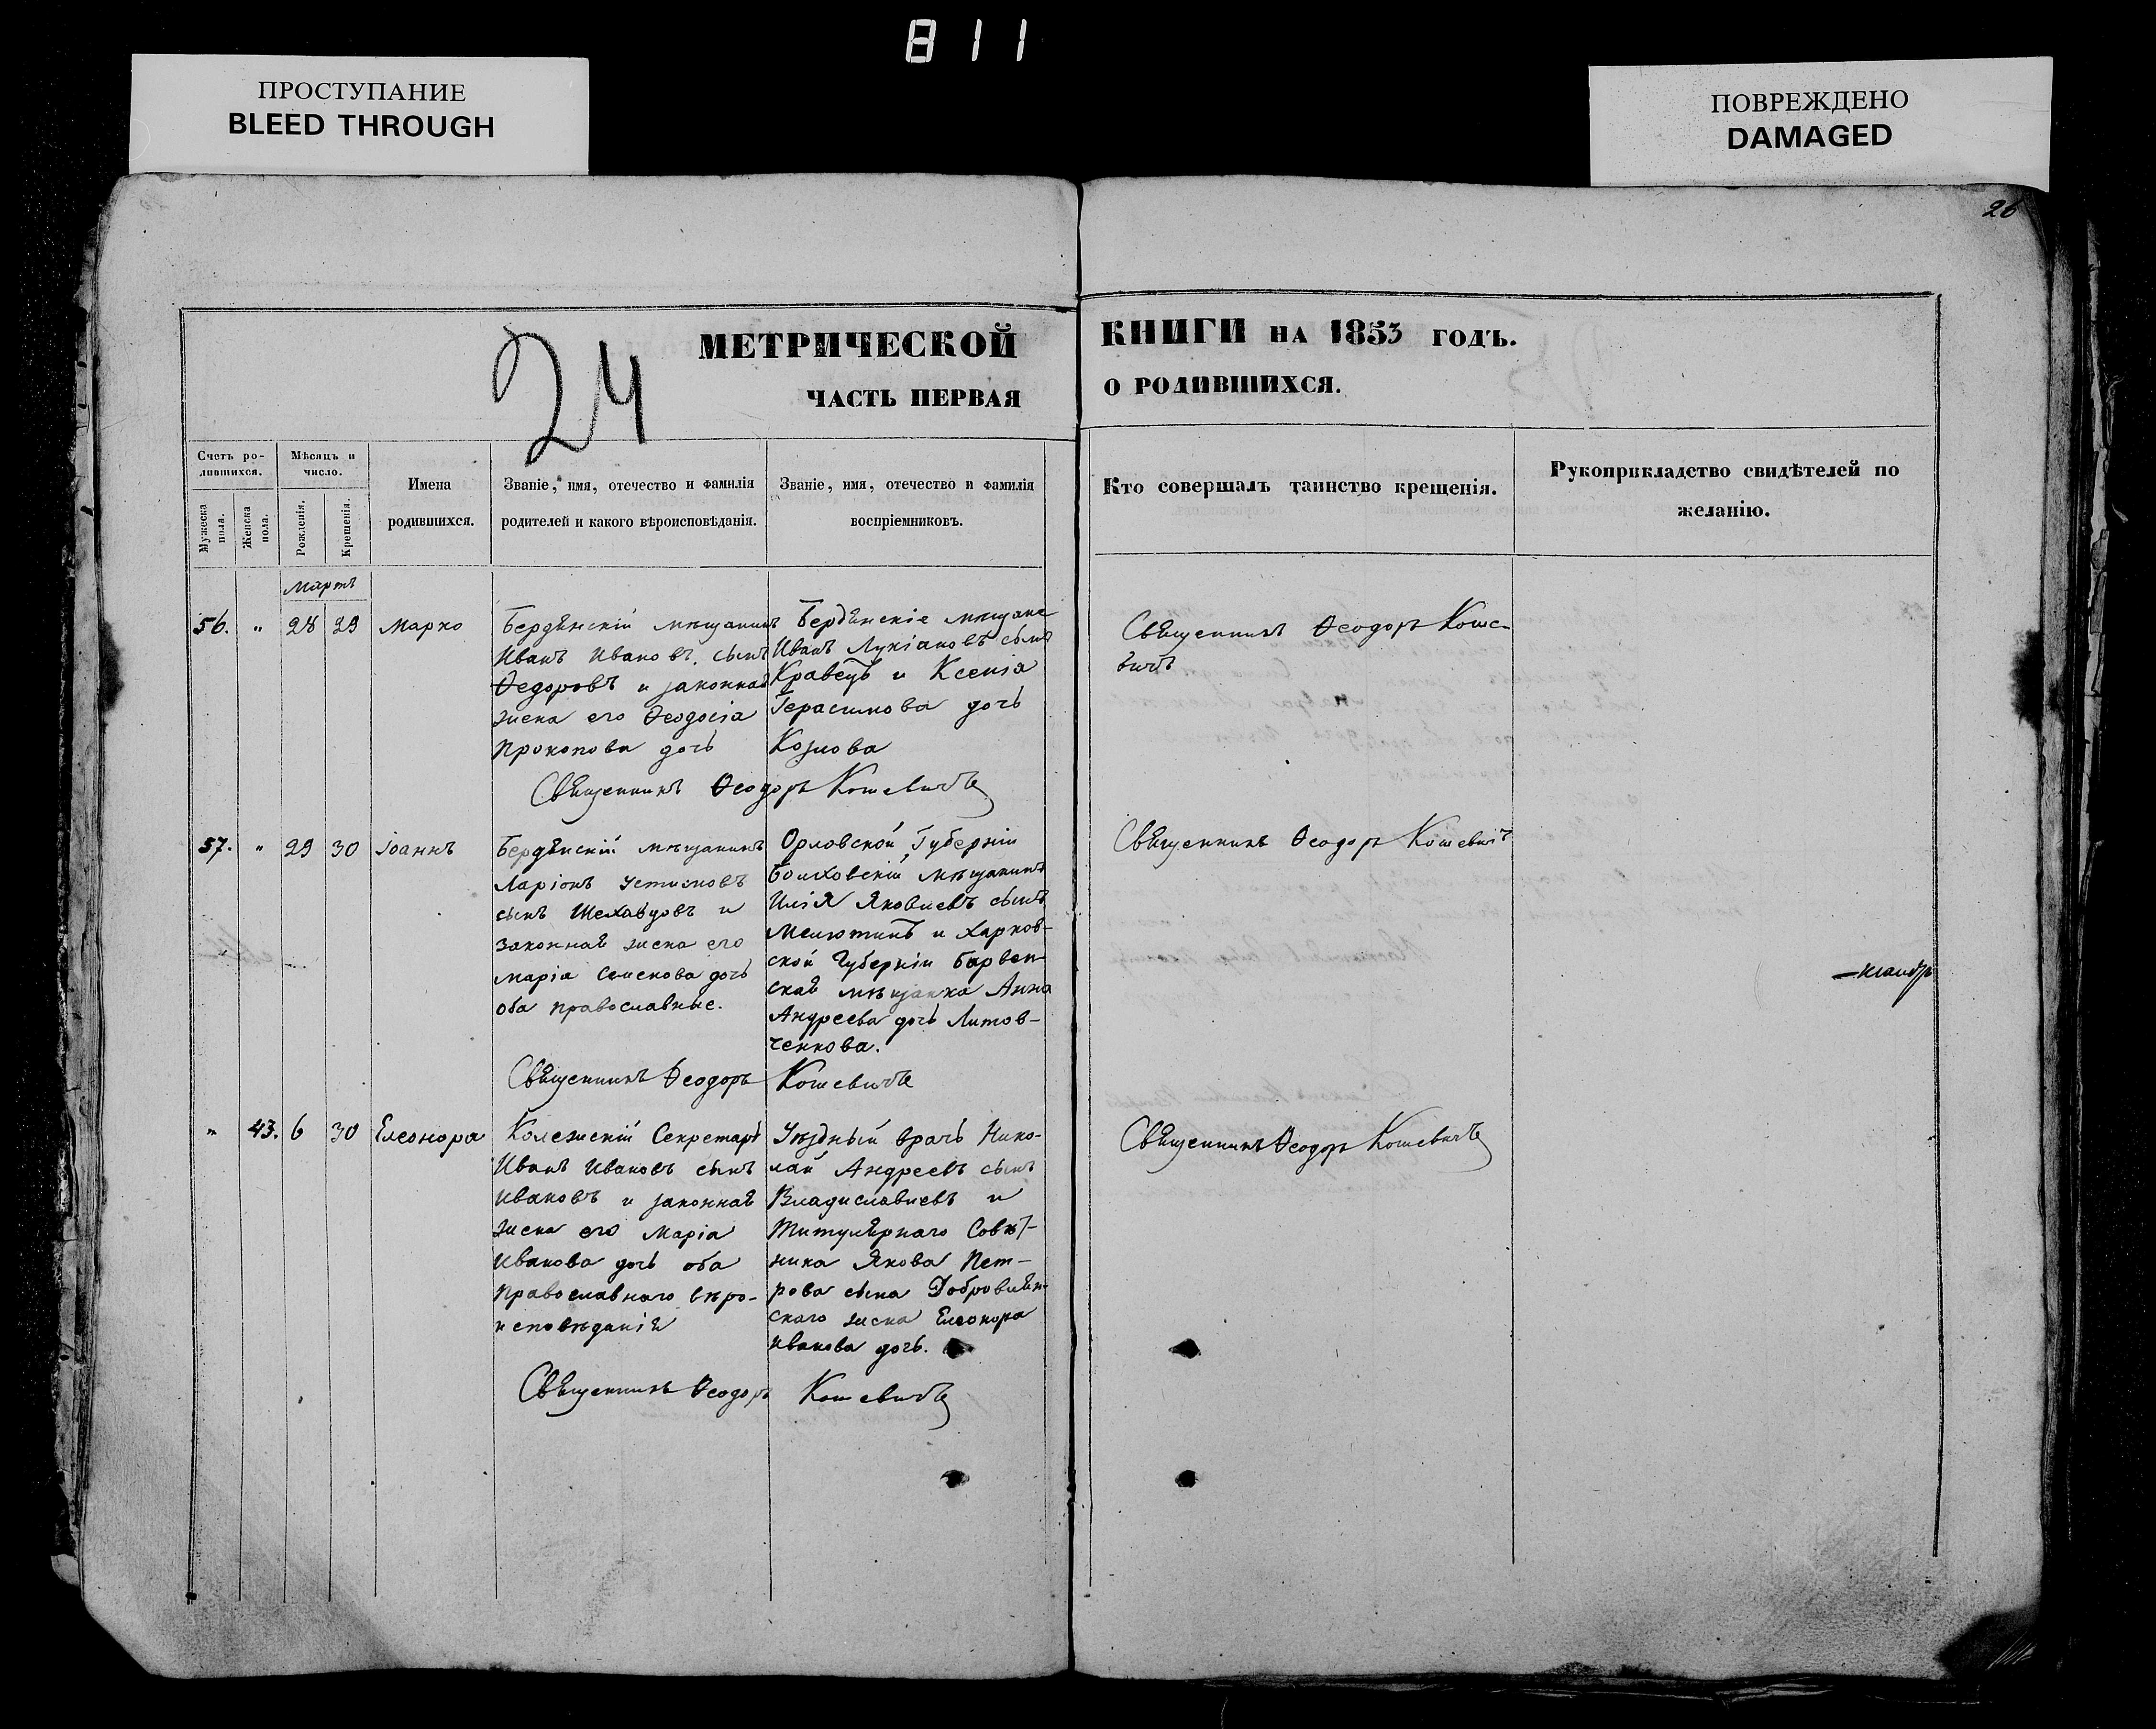 811
ПРОСТУПАНИЕ
BLEED THROUGH
ПОВРЕЖДЕНО
DAMAGED
26
24
МЕТРИЧЕСКОЙ КНИГИ НА 1853 ГОДЪ.
ЧАСТЬ ПЕРВАЯ О РОДИВШИХСЯ.
Счетъ ро-
дившихся.
Мужеска
пола.
Женска
пола.
Мѣсяцъ и
число.
Рожденія.
Крещенія.
Имена
родившихся.
Званіе, имя, отечество и фамилія
родителей и какого вѣроисповѣданія.
Званіе, имя, отечество и фамилія
воспріемниковъ.
Кто совершалъ таинство крещенія.
Рукоприкладство свидѣтелей по
желанію.
Мартъ
56. " 28 29 Марко
Бердянскій мѣщанинъ
Иванъ Ивановъ сынъ
Ѳедоровъ и законная
жена его Ѳеодосія
Прокопова дочь
Бердянскіе мѣщане
Иванъ Лукіановъ сынъ
Кравецъ и Ксенія
Герасимова дочь
Козлова
Священникъ Ѳеодоръ Кошевичъ
Священникъ Ѳеодоръ Коше-
вичъ
57. " 29 30 Іоаннъ
Бердянскій мѣщанинъ
Ларіонъ Устиновъ
сынъ Шеховцовъ и
законная жена его
Марія Семенова дочь
оба православные.
Орловской Губерніи
Болховскій мѣщанинъ
Илія Яковлевъ сынъ
Мелютинъ и Харков-
ской Губерніи Барвен-
ская мѣщанка Анна
Андреева дочь Литов-
ченкова.
Священникъ Ѳеодоръ Кошевичъ
Священникъ Ѳеодоръ Кошевичъ
" 43. 6 30 Елеонора
Колежскій Секретарь
Иванъ Ивановъ сынъ
Ивановъ и законная
жена его Марія
Иванова дочь оба
Православнаго вѣро-
исповѣданія
Уѣздный врачь Нико-
лай Андреевъ сынъ
Владиславлевъ и
Титулярнаго Совѣт-
ника Якова Пет-
рова сына Добровлян-
скаго жена Елеонора
Иванова дочь.
Священникъ Ѳеодоръ Кошевичъ
Священникъ Ѳеодоръ Кошевичъ